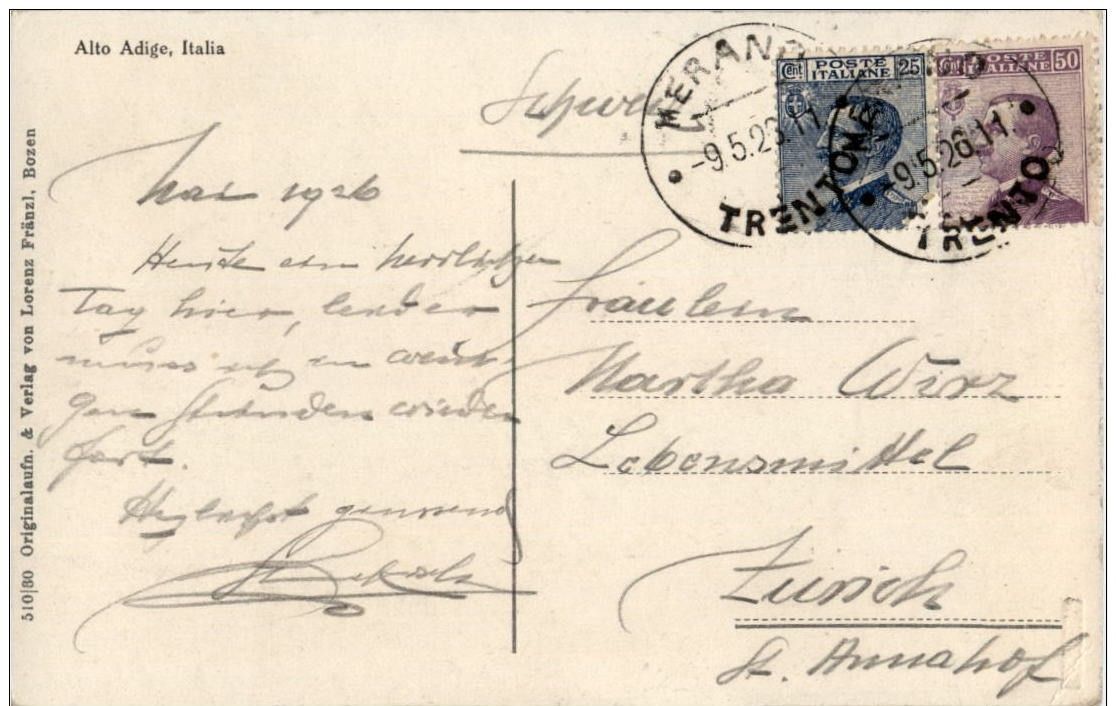 Alto Adige, Italia
510|80 Originalaufn. & Verlag von Lorenz Fränzl, Bozen
MERANO
-9.5.26.11
TRENTO
Cent POSTE 25
ITALIANE
MERANO
-9.5.26.11.
TRENTO
Cent POSTE 50
ITALIANE
Schweiz
Mai 1926
Heute ein herrlicher
Tag hier, leider
muss ich in wenigen
gen Stunden wieder
fort.
Herzlichst grüssend
Fräulein
Martha Wirz
Lebensmittel
Zürich
St. Annahof